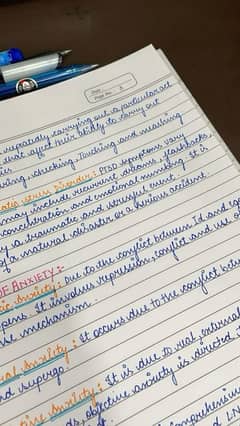 Date
Page No.
repeatedly carrying out a particular act
that affect their ability to carry out
checking, touching and washing
stress Disorder: PTSD symptoms vary
may include recurrent dreams, flashbacks,
concentration and emotional numbing. It is
by a traumatic and stressful event
of a natural disaster or a serious accident.
OF ANXIETY:-
Anxiety: Due to the conflict between Id and ego
It involves repression, conflict and use of
mechanism.
Anxiety: It occurs due to the conflict between
and superego.
Anxiety: It is due to real, external
objective anxiety is directed
comprehensive